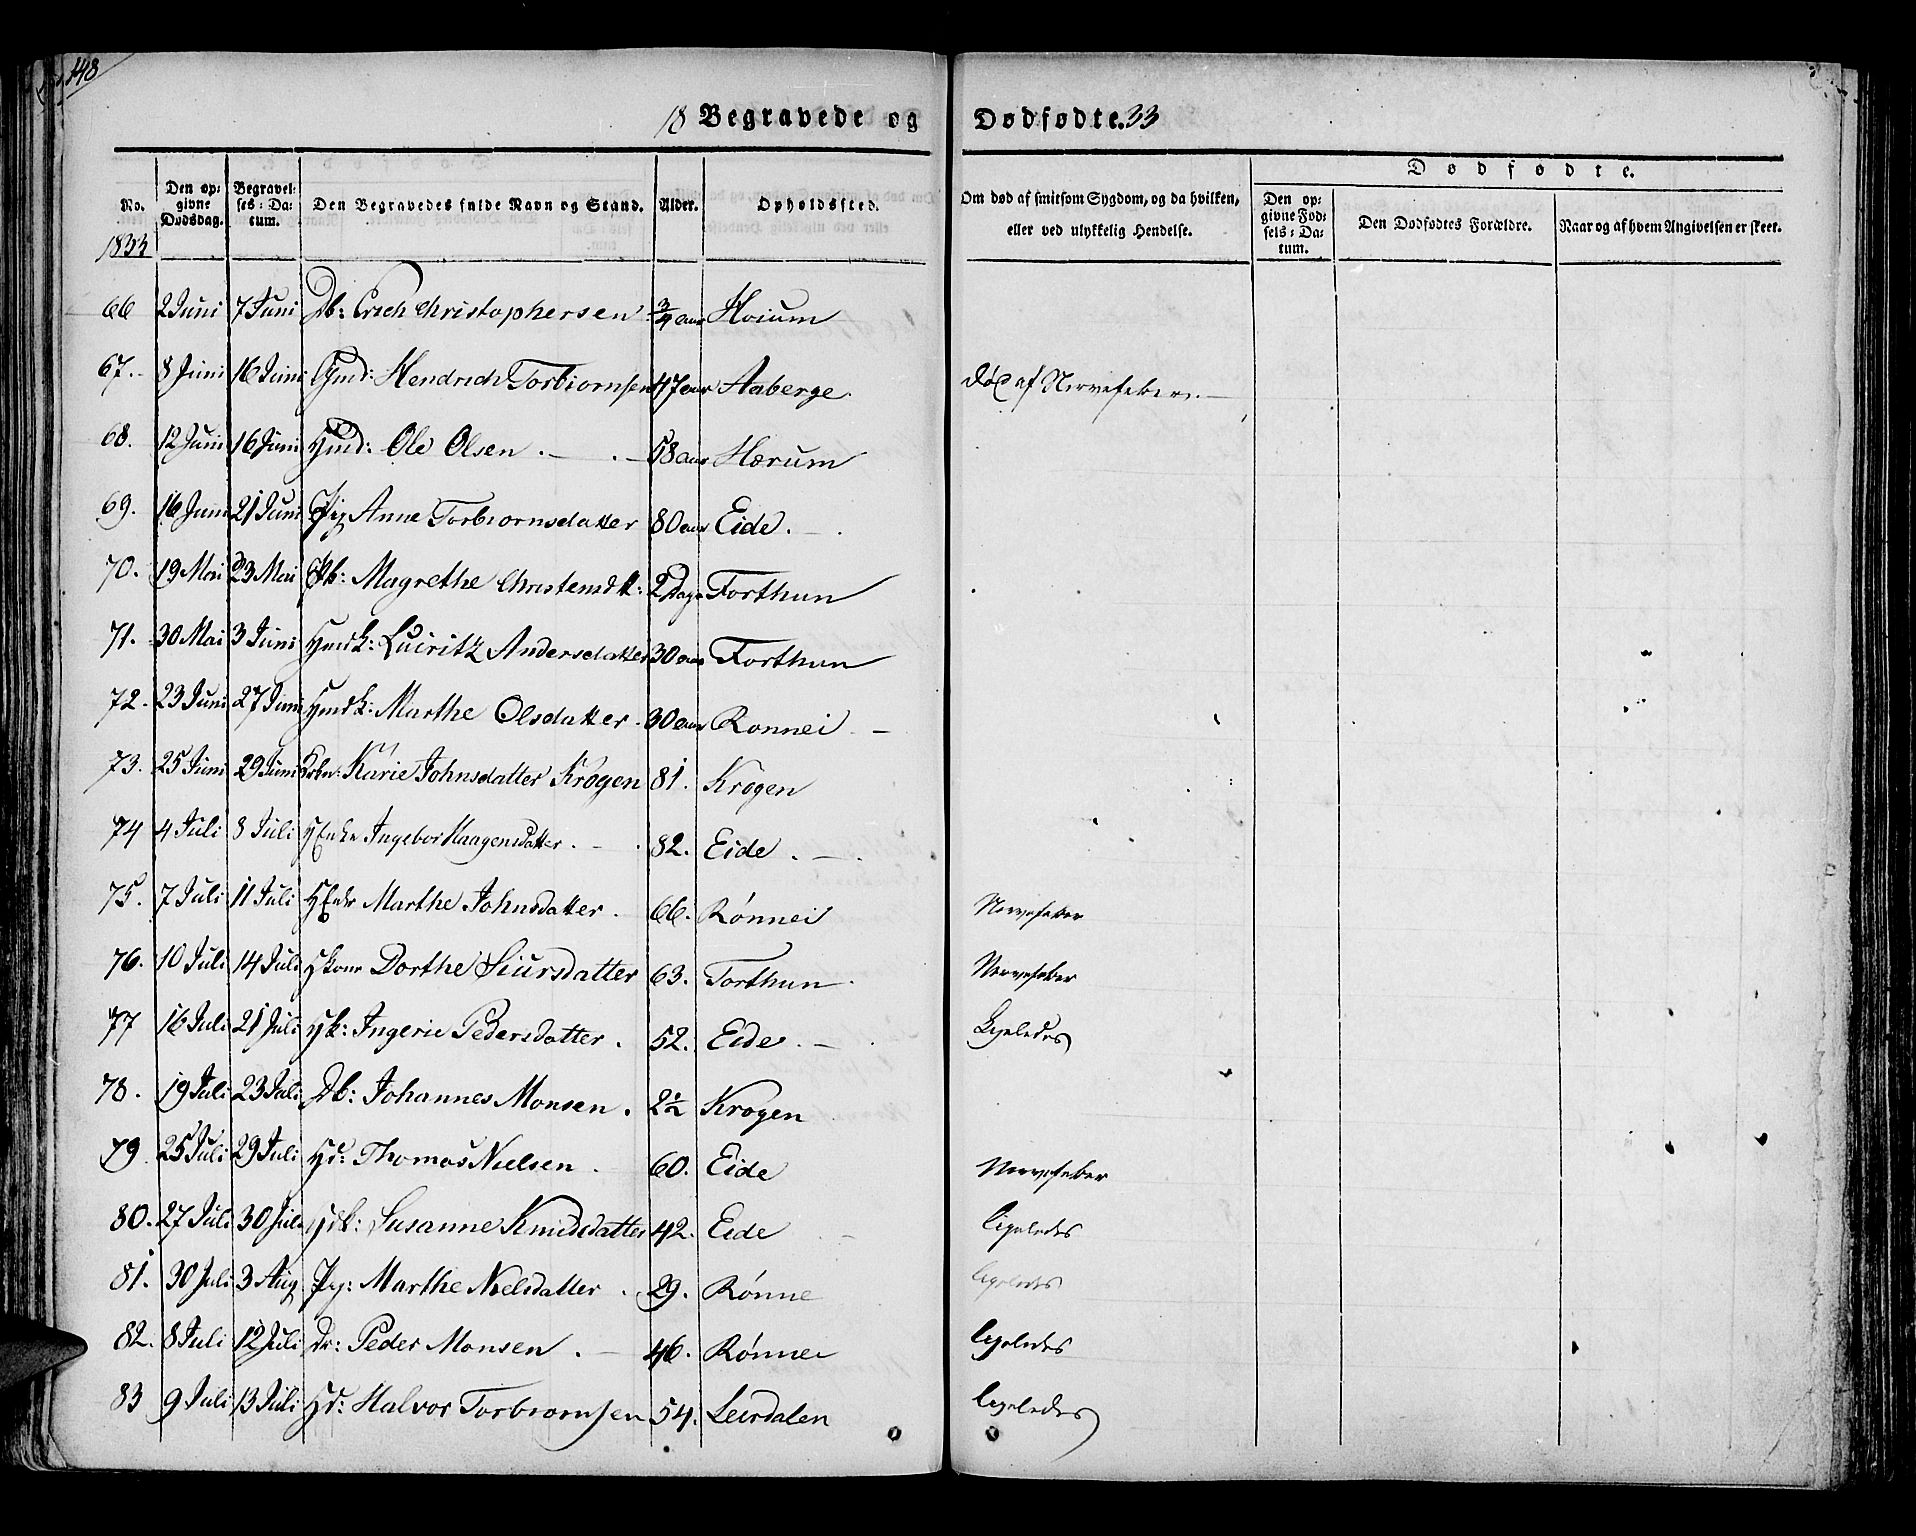 148
18 Begravede og Dødfødte. 33
No.
Den op-
givne
Dødsdag.
Begravel-
ses-Da-
tum.
Den Begravedes fulde Navn og Stand.
Alder.
Opholdssted.
Om død af smitsom Sygdom, og da hvilken,
eller ved ulykkelig Hendelse.
Dødfødte.
Den op-
givne Fød-
sels-Da-
tum.
Den Dødfødtes Forældre.
Naar og af hvem Angivelsen er skeet.
1833
66 2 Juni 7 Juni Db: Erich Christophersen 3/4 aar Hoium
67. 8 Juni 16 Juni Gmd: Hendrich Torbiørnsen 47 aar Aaberge. død af Nervefeber.
68. 12 Juni 16 Juni Hmd: Ole Olsen 58 aar Hærum
69. 16 Juni 21 Juni Pig Anne Torbiornsdatter 80 aar Eide.
70. 19 Mai 23 Mai Pb: Magrethe Christensdtt: 2 Dage Forthun
71. 30 Mai 3 Juni Hmdk: Luiritz Andersdatter 30 aar Forthun
72. 23 Juni 27 Juni Hmdk: Marthe Olsdatter 30 aar Ronnei
73. 25 Juni 29 Juni Karie Johnsdatter Krogen 81. Krogen
74 4 Juli 8 Juli HEnke Ingebor Haagensdatter. 82. Eide.
75. 7 Juli 11 Juli HEnke Marthe Johnsdatter. 66. Rønnei Nervefeber
76. 10 Juli 14 Juli Hkone Dorthe Siursdatter 63. Forthun. Nervefeber
77 16 Juli 21 Juli Hk: Ingerie Pedersdatter. 52. Eide. Ligeledes
78. 19 Juli 23 Juli Db: Johannes Monsen. 2½ Krogen
79 25 Juli 29 Juli Hd: Thomas Nielsen 60. Eide Nervefeber
80. 27 Juli 30 Juli Hdk: Susanne Knudsdatter 42. Eide ligeledes
81. 30 Juli 3 Aug Pig: Marthe Nielsdatter. 29. Rønne ligeledes
82. 8 Juli 12 Juli Dr: Peder Monsen. 46. Rønnei ligeledes
83 9 Juli 13 Juli Hd: Halvor Torbiornsen 54. Leirdalen ligeledes